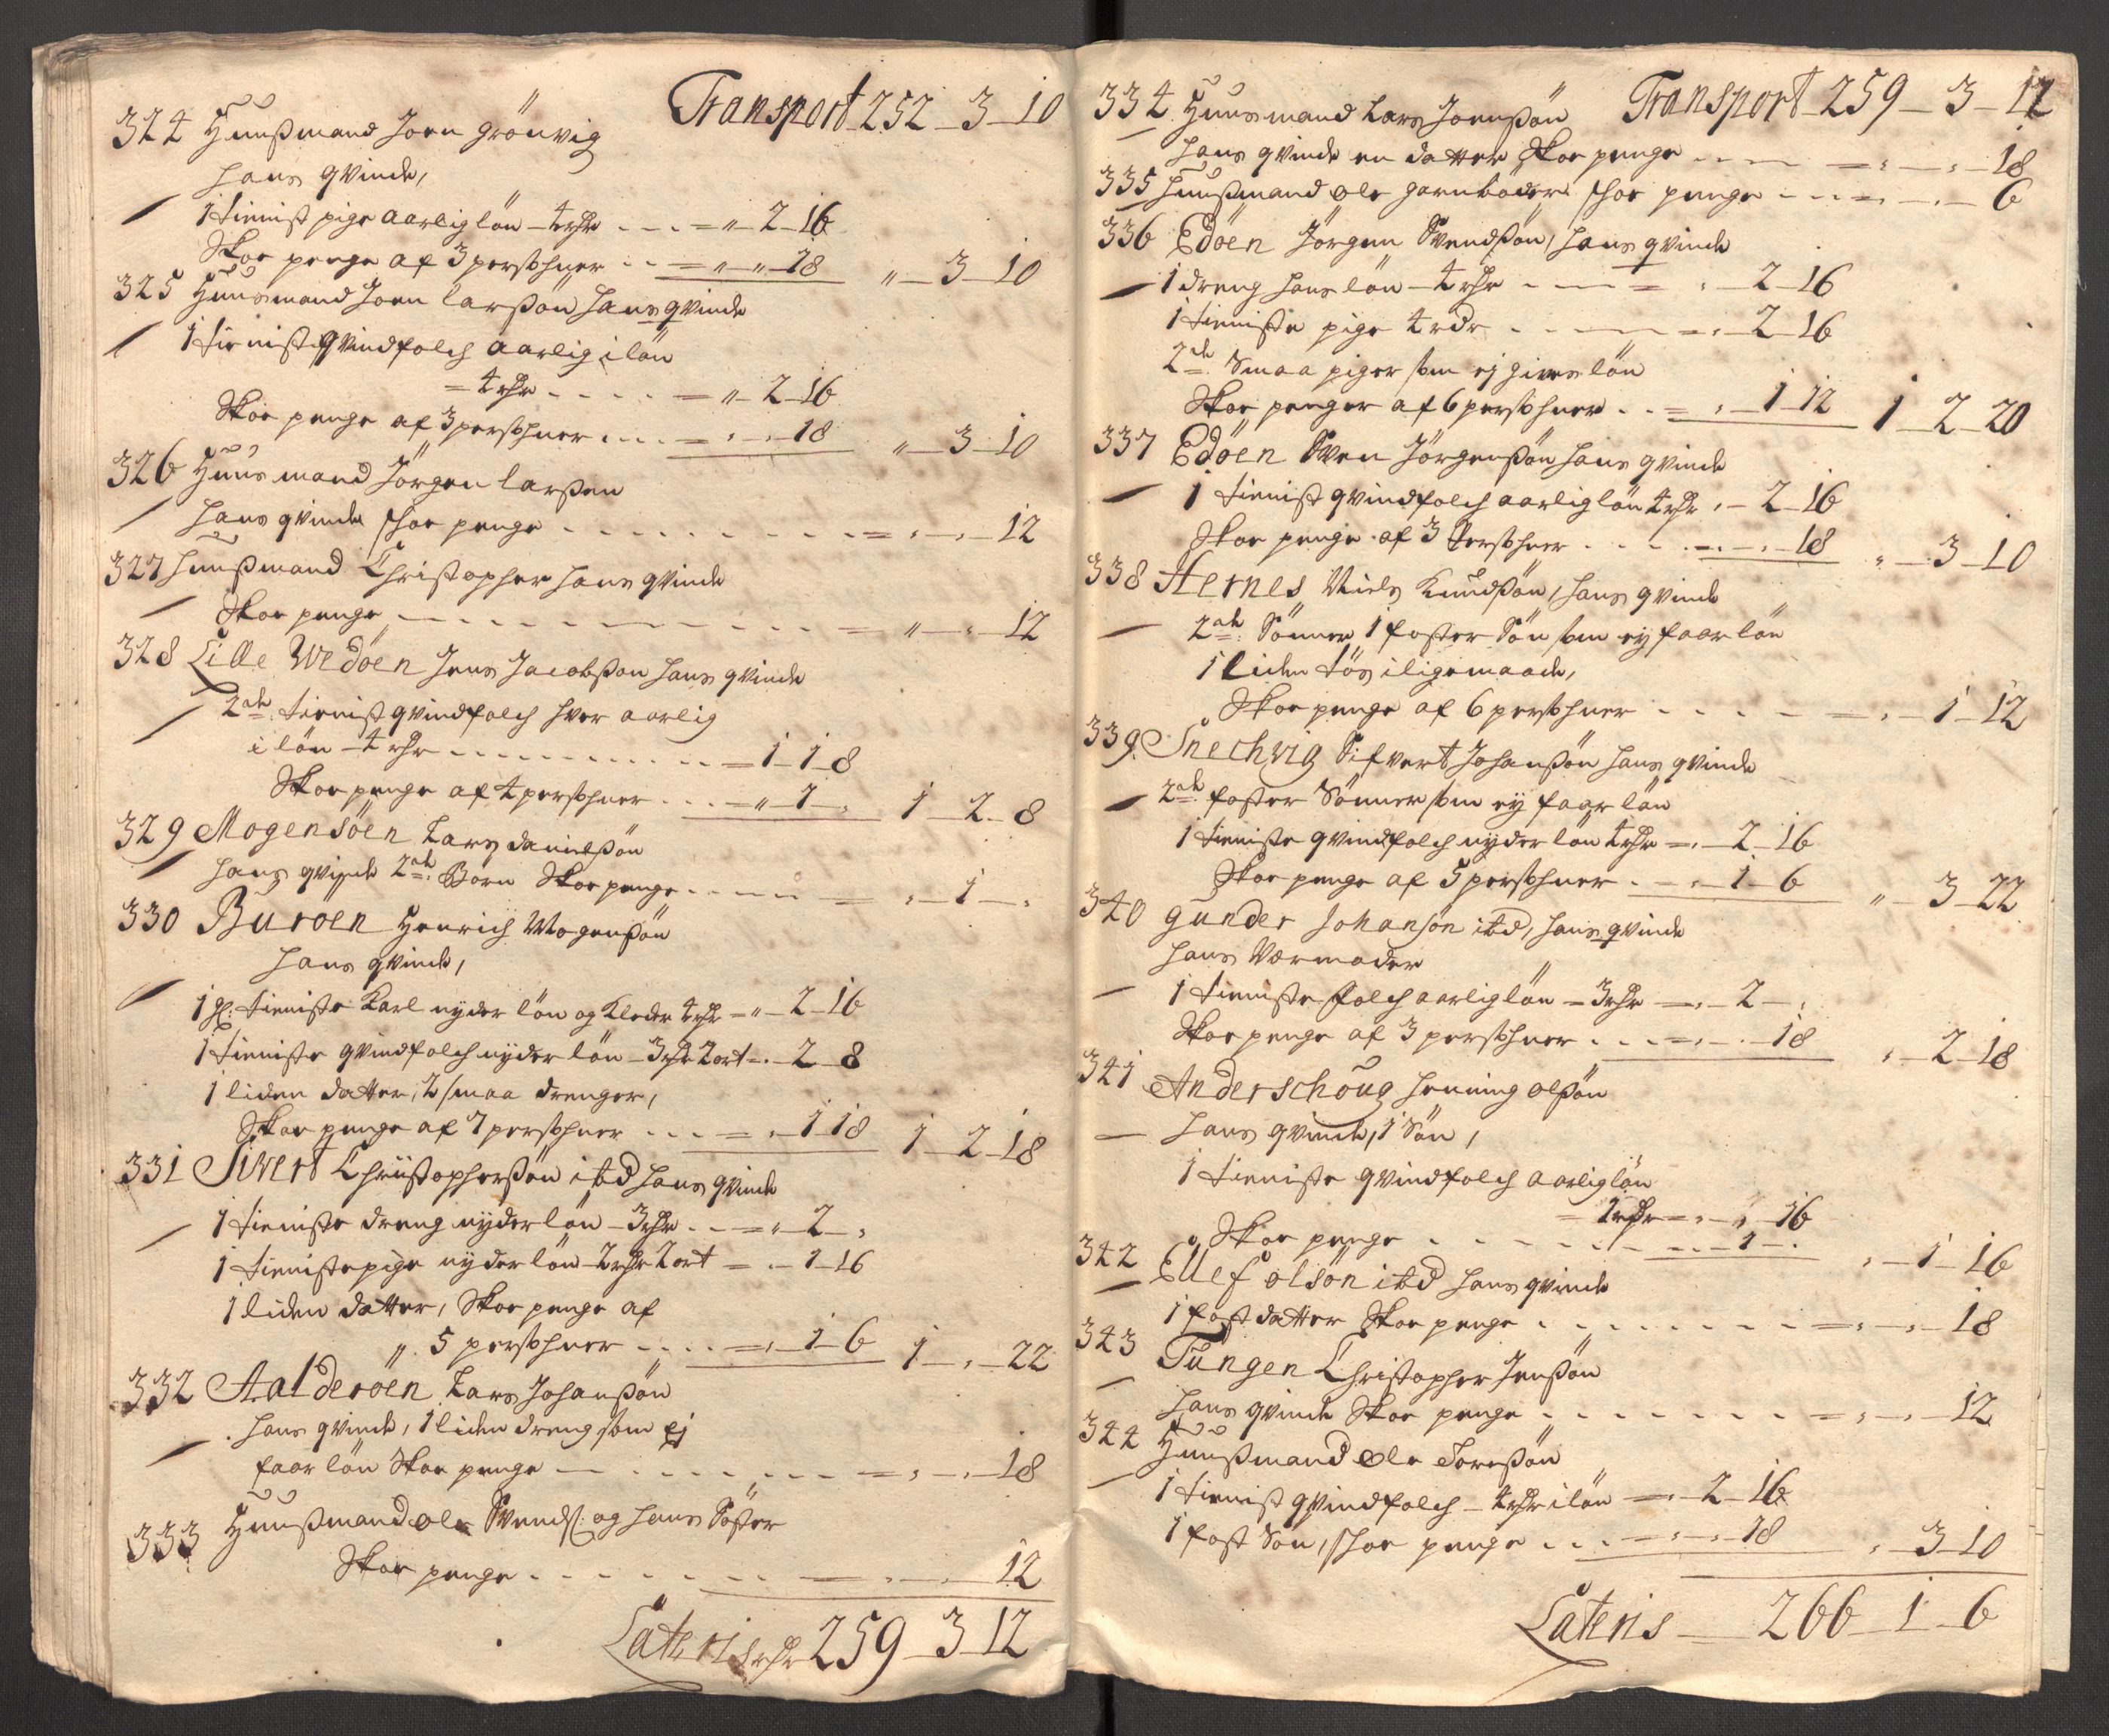 Transport 252 - 3 - 10
324 Huußmand Joen Grönvig
Hans qvinde,
1 tienist pige aarlig lön - 4 rdr - - - = " - 2 - 16
Skoe penge af 3 persohner - - = " - " - 18 " - 3 - 10
325 Huusmand Joen Larßön Hans qvinde
1 tienist qvindfolch aarlig i lön
= 4 rdr - - - - = " - 2 - 16
Skoe penge af 3 persohner - - - = - " - 18 " - 3 - 10
326 Huusmand Jörgen Larßen
Hans qvinde skoe penge - - - - - = " - " - 12
327 Huußmand Christopher Hans qvinde
Skoe penge - - - - - = " - " - 12
328 Lille Wedöen Jens Jacobßön Hans qvinde
2de tienist qvindfolch hver aarlig
i lön - 4 rdr - - - - - = 1 - 1 - 8
Skoe penge af 4 persohner - - - = " - 1 - " 1 - 2 - 8
329 Mogensöen Lars Danielßön
Hans qvinde 2de Börn Skoe penge - - - = " - 1 - "
330 Buröen Henrich Mogenßön
Hans qvinde,
1 gl: tieniste Karl nyder lön og Kleder 4 rdr - " - 2 - 16
1 tieniste qvindfolch nyder lön - 3 rdr 2 ort - " 2 - 8
1 liden datter, 2 smaa drenger,
Skoe penge af 7 persohner - - - = " - 1 - 18 1 - 2 - 18
331 Sivert Christopherßön ibd Hans qvinde
1 tieniste dreng nyder lön - 3 rdr - - = " - 2 - "
1 tienistepige nyder lön 2 rdr 2 ort - = " - 1 - 16
1 liden datter, Skoe penge af
" 5 persohner - - - - = " - 1 - 6 1 - " - 22
332 Aalderöen Lars Johanßön
Hans qvinde, 1 liden dreng som ej
faar lön Skoe penge - - - - - = " - " - 18
333 Huußmand Ole Svends: og Hans Söster
Skoe penge - - - - - = " - " - 12
Lateris rdr 259 - 3 - 12
Transport 259 - 3 - 12
334 Huusmand Lars Joenßön
Hans qvinde en datter Skoe penge - - - = " - " - 18
335 Huußmand Ole Garnboder skoe penge - - - = " - " - 6
336 Edöen Jörgen Svendßön, Hans qvinde
1 dreng Hans lön - 4 rdr - - - = " - 2 - 16
1 tieniste pige 4 rdr - - - = " - 2 - 16
2de Smaa piger som ej gives lön
Skoe penger af 6 persohner - - = " - 1 - 12 1 - 2 - 20
337 Edöen Sven Jörgenßön Hans qvinde
1 tienist qvindfolch aarlig lön 4 rdr " - 2 - 16
Skoe penge af 3 Persohner - - - - " - 18 " - 3 - 10
338 Hernes Niels Knudßön, Hans qvinde
2de Sönner, 1 foster Sön som ey faar lön
1 liden tös iligemaade,
Skoe penge af 6 persohner - - - - = " - 1 - 12
339 Snechvig Sifvert Johanßön Hans qvinde
2de foster Sönner som ey faar lön
1 tieniste qvindfolch nyder lön 4 rdr = " - 2 - 16
Skoe penge af 5 persohner - - " - 1 - 6 " - 3 - 22
340 Gunder Johansön ibd, Hans qvinde
Hans Vermoder
1 tieniste folch aarlig lön - 3 rdr = " - 2 - "
Skoe penge af 3 persohner - - - = " - 18 " - 2 - 18
341 Anderschoug Henning Olßön
Hans qvinde, 1 Sön,
1 tieniste qvindfolch aarlig lön
= 1 rdr = " - " - 16
Skoe penge - - - - - " - 1 - " " - 1 - 16
342 Ellef Olsön ibd Hans qvinde
1 fost datter Skoe penge - - - - - = " - " - 18
343 Tungen Christopher Jenßön
Hans qvinde Skoe penge - - - - - = " - " - 12
344 Huußmand Ole Toreßön
1 tienist qvindfolch - 4 rdr i lön = " - 2 - 16
1 fost Sön, skoe penge - - - = " - " 18 " - 3 - 10
Lateris - 266 - 1 - 6